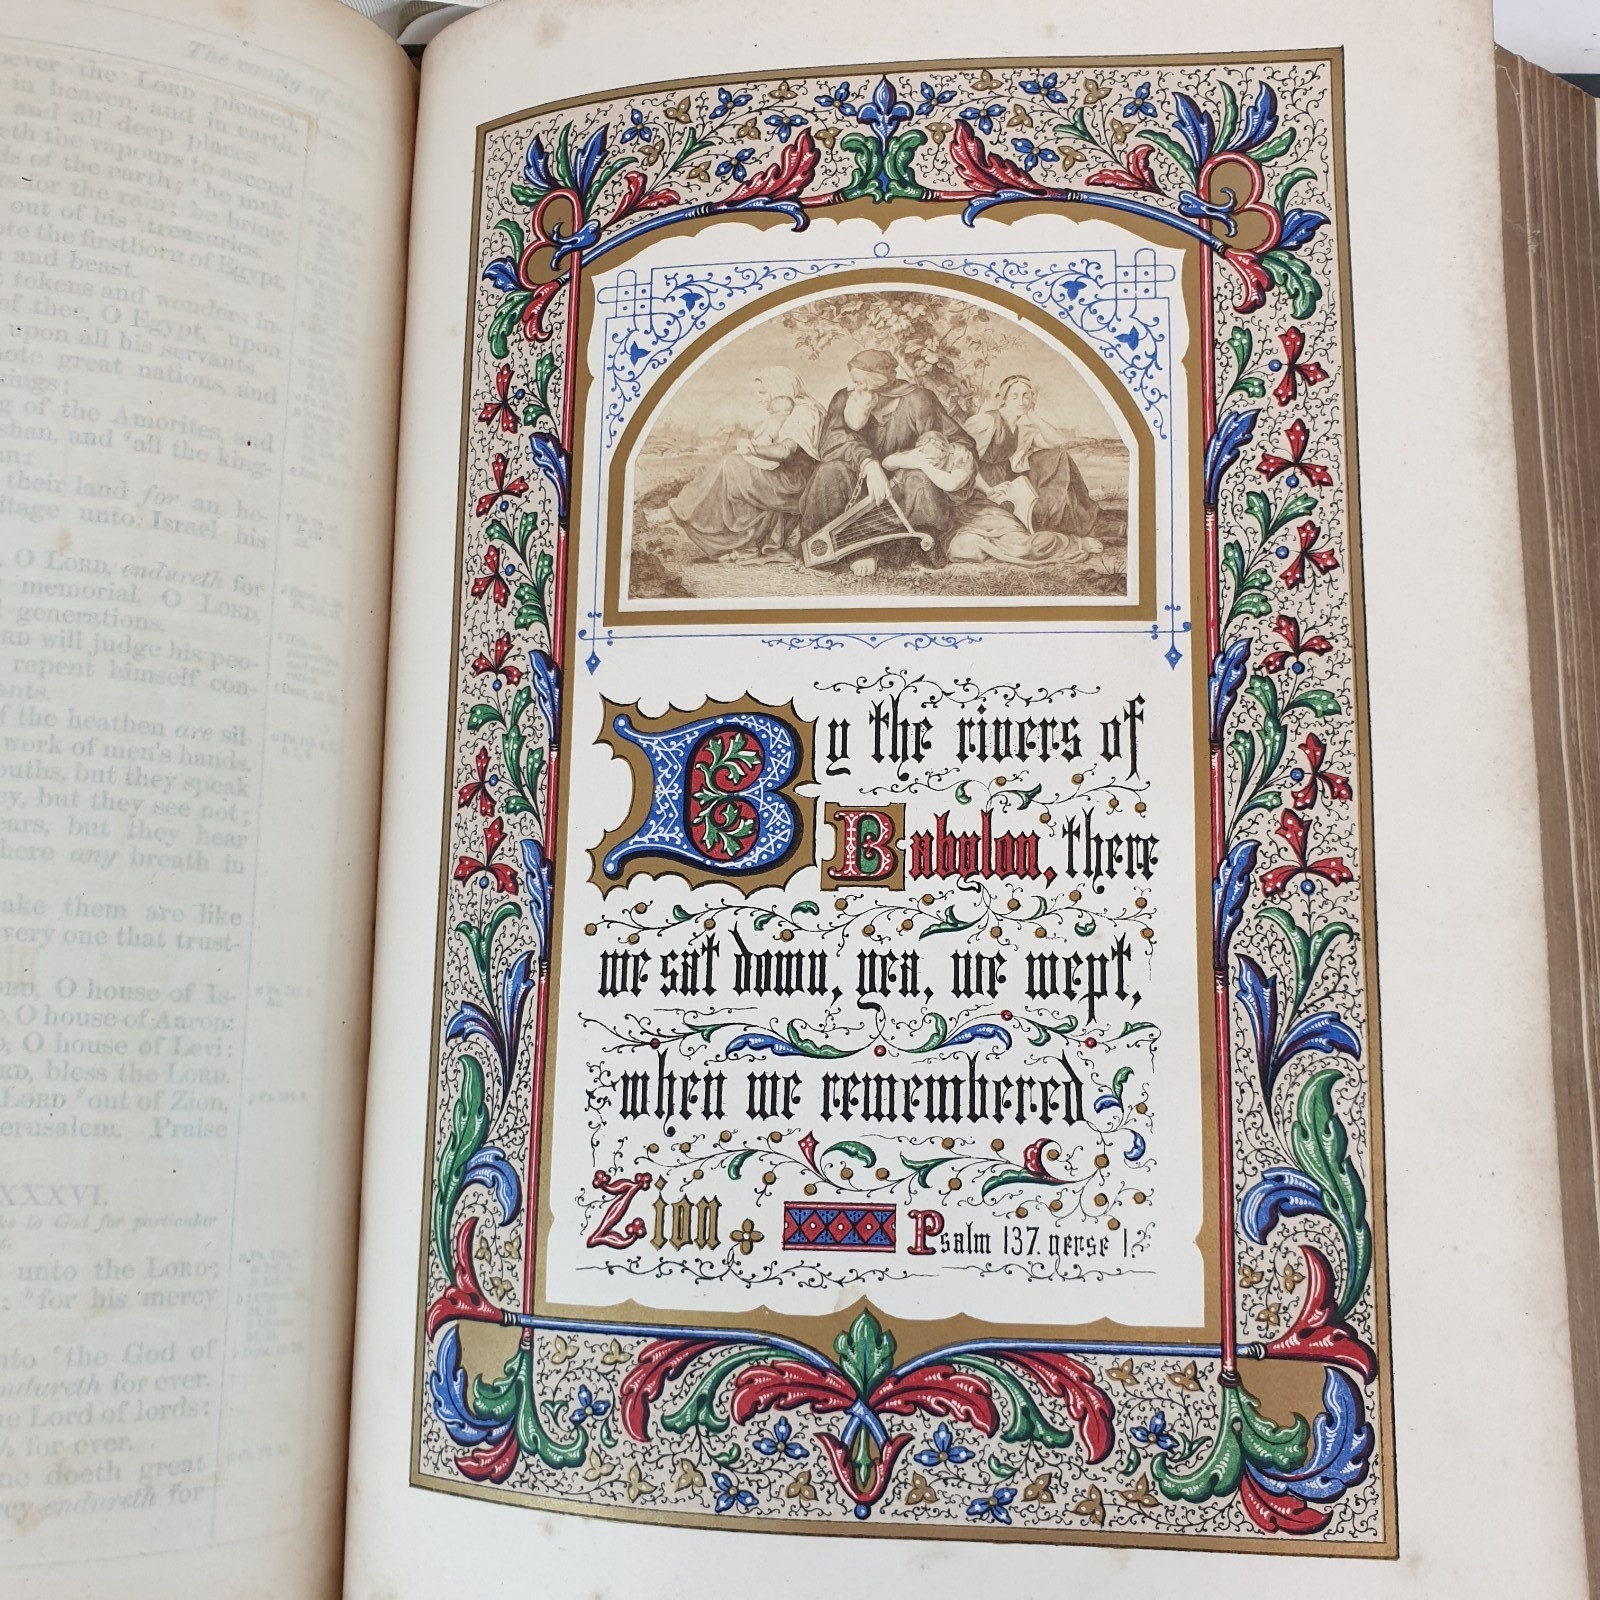 The vanity of
the LORD pleased,
in heaven, and in earth,
and all deep places.
the vapours to ascend
of the earth; he mak-
for the rain; he bring-
out of his treasuries.
the firstborn of Egypt,
and beast.
tokens and wonders in-
of thee, O Egypt, upon
upon all his servants.
great nations, and
kings;
of the Amorites, and
and all the king-
their land for an he-
unto Israel his
O LORD, endureth for
memorial, O LORD,
generations.
will judge his peo-
repent himself con-
the heathen are sil-
work of men's hands.
but they speak
but they see not;
ears, but they hear
any breath in
make them are like
every one that trust-
O house of Is-
O house of Aaron:
O house of Levi:
bless the LORD.
LORD out of Zion,
Praise
XXXVI.
to God for particular
unto the LORD;
for his mercy
the God of
endureth for ever.
the Lord of lords:
for ever.
doeth great
endureth for
By the rivers of
Babylon, there
we sat down, yea, we wept,
when we remembered
Zion
Psalm 137. verse 1